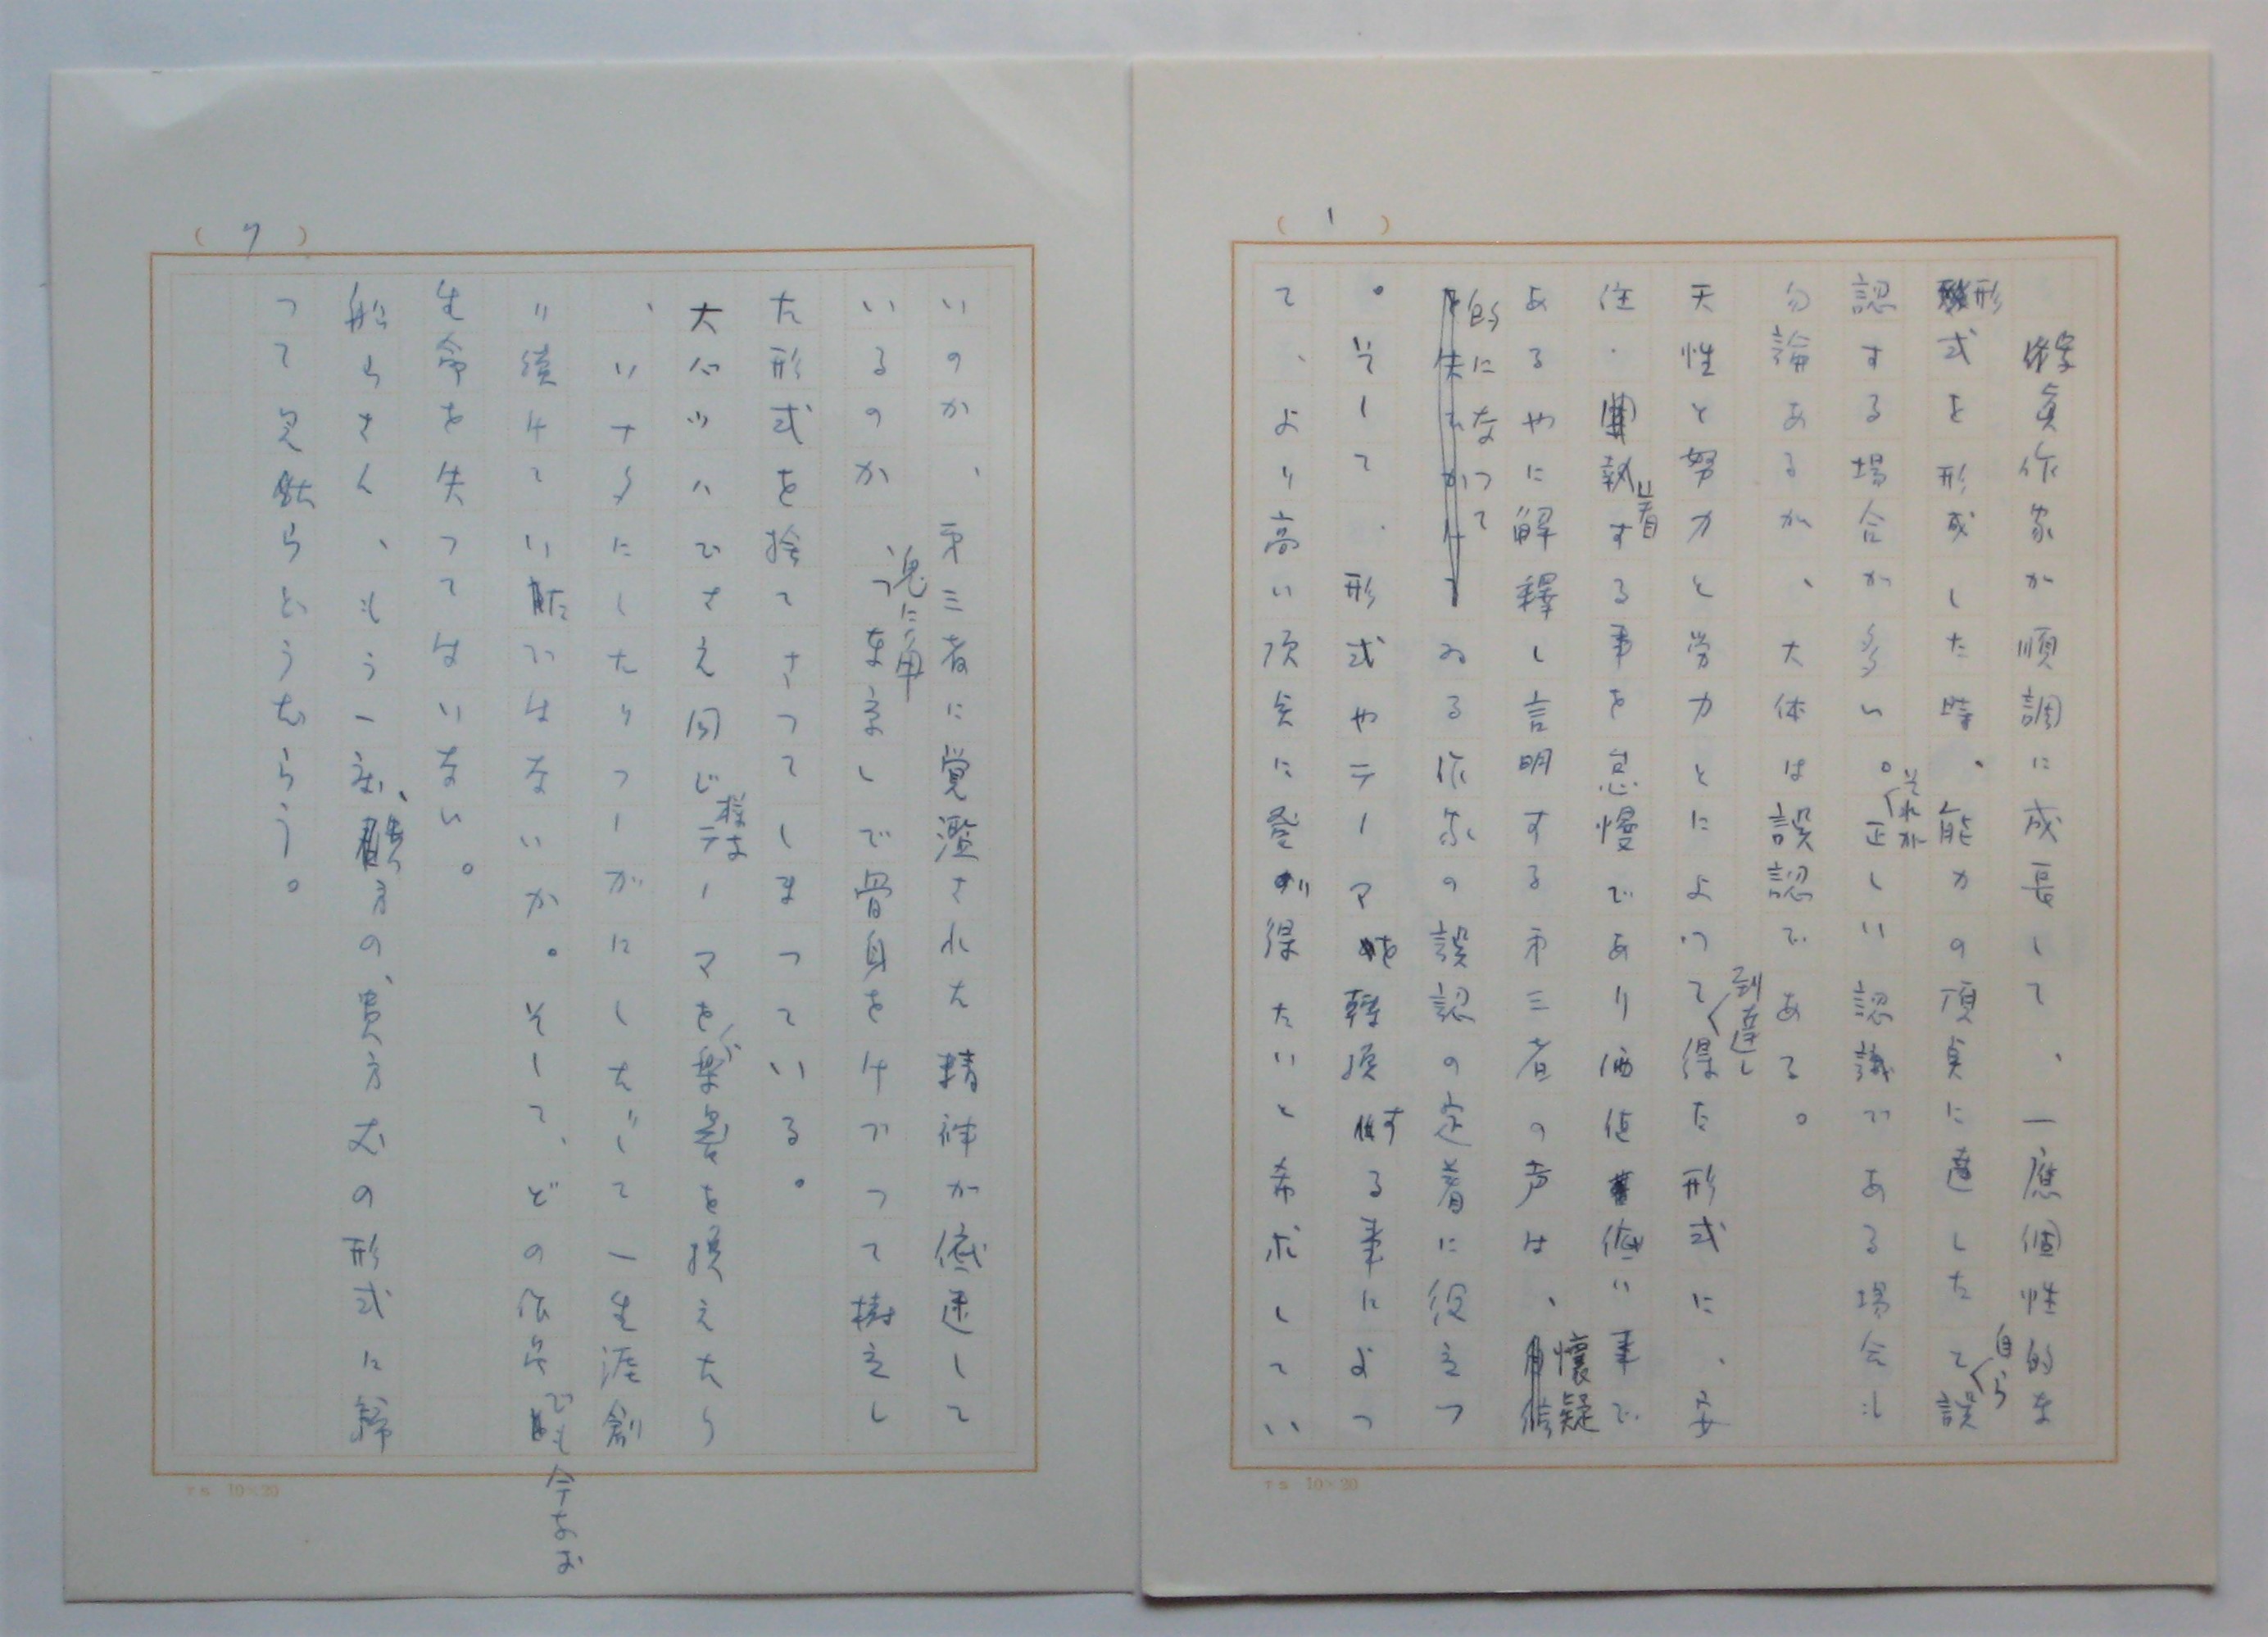 ( 1 )
写真作家が順調に成長して、一應個性的な
形式を形成した時、能力の頂点に達したと自ら誤
認する場合が多い。それが正しい認識である場合も
勿論あるが、大体は誤認である。
天性と努力と労力とによって到達し得た形式に、安
住・固執する事を怠慢であり価値低い事で
あるやに解釋し言明する第三者の声は、懐疑
的になってゐる作家の誤認の定着に役立つ
。そして、形式やテーマを轉換する事によっ
て、より高い頂点に登り得たいと希求してい
( 7 )
いのか、第三者に覚濫された精神が低迷して
いるのか、兎に角なまなましで骨身をけづって樹立し
た形式を捨てさってしまっている。
大バッハでさえ同じ様なテーマを楽器を換えたり
、いナタにしたりフーガにしたじて一生涯創
り続けていたではないか。そして、どの作品でも今なお
生命を失ってはいない。
船らさん、もう一度、貴方の、貴方だの形式に歸
って見たらどうだらう。
TS 10×20
TS 10×20